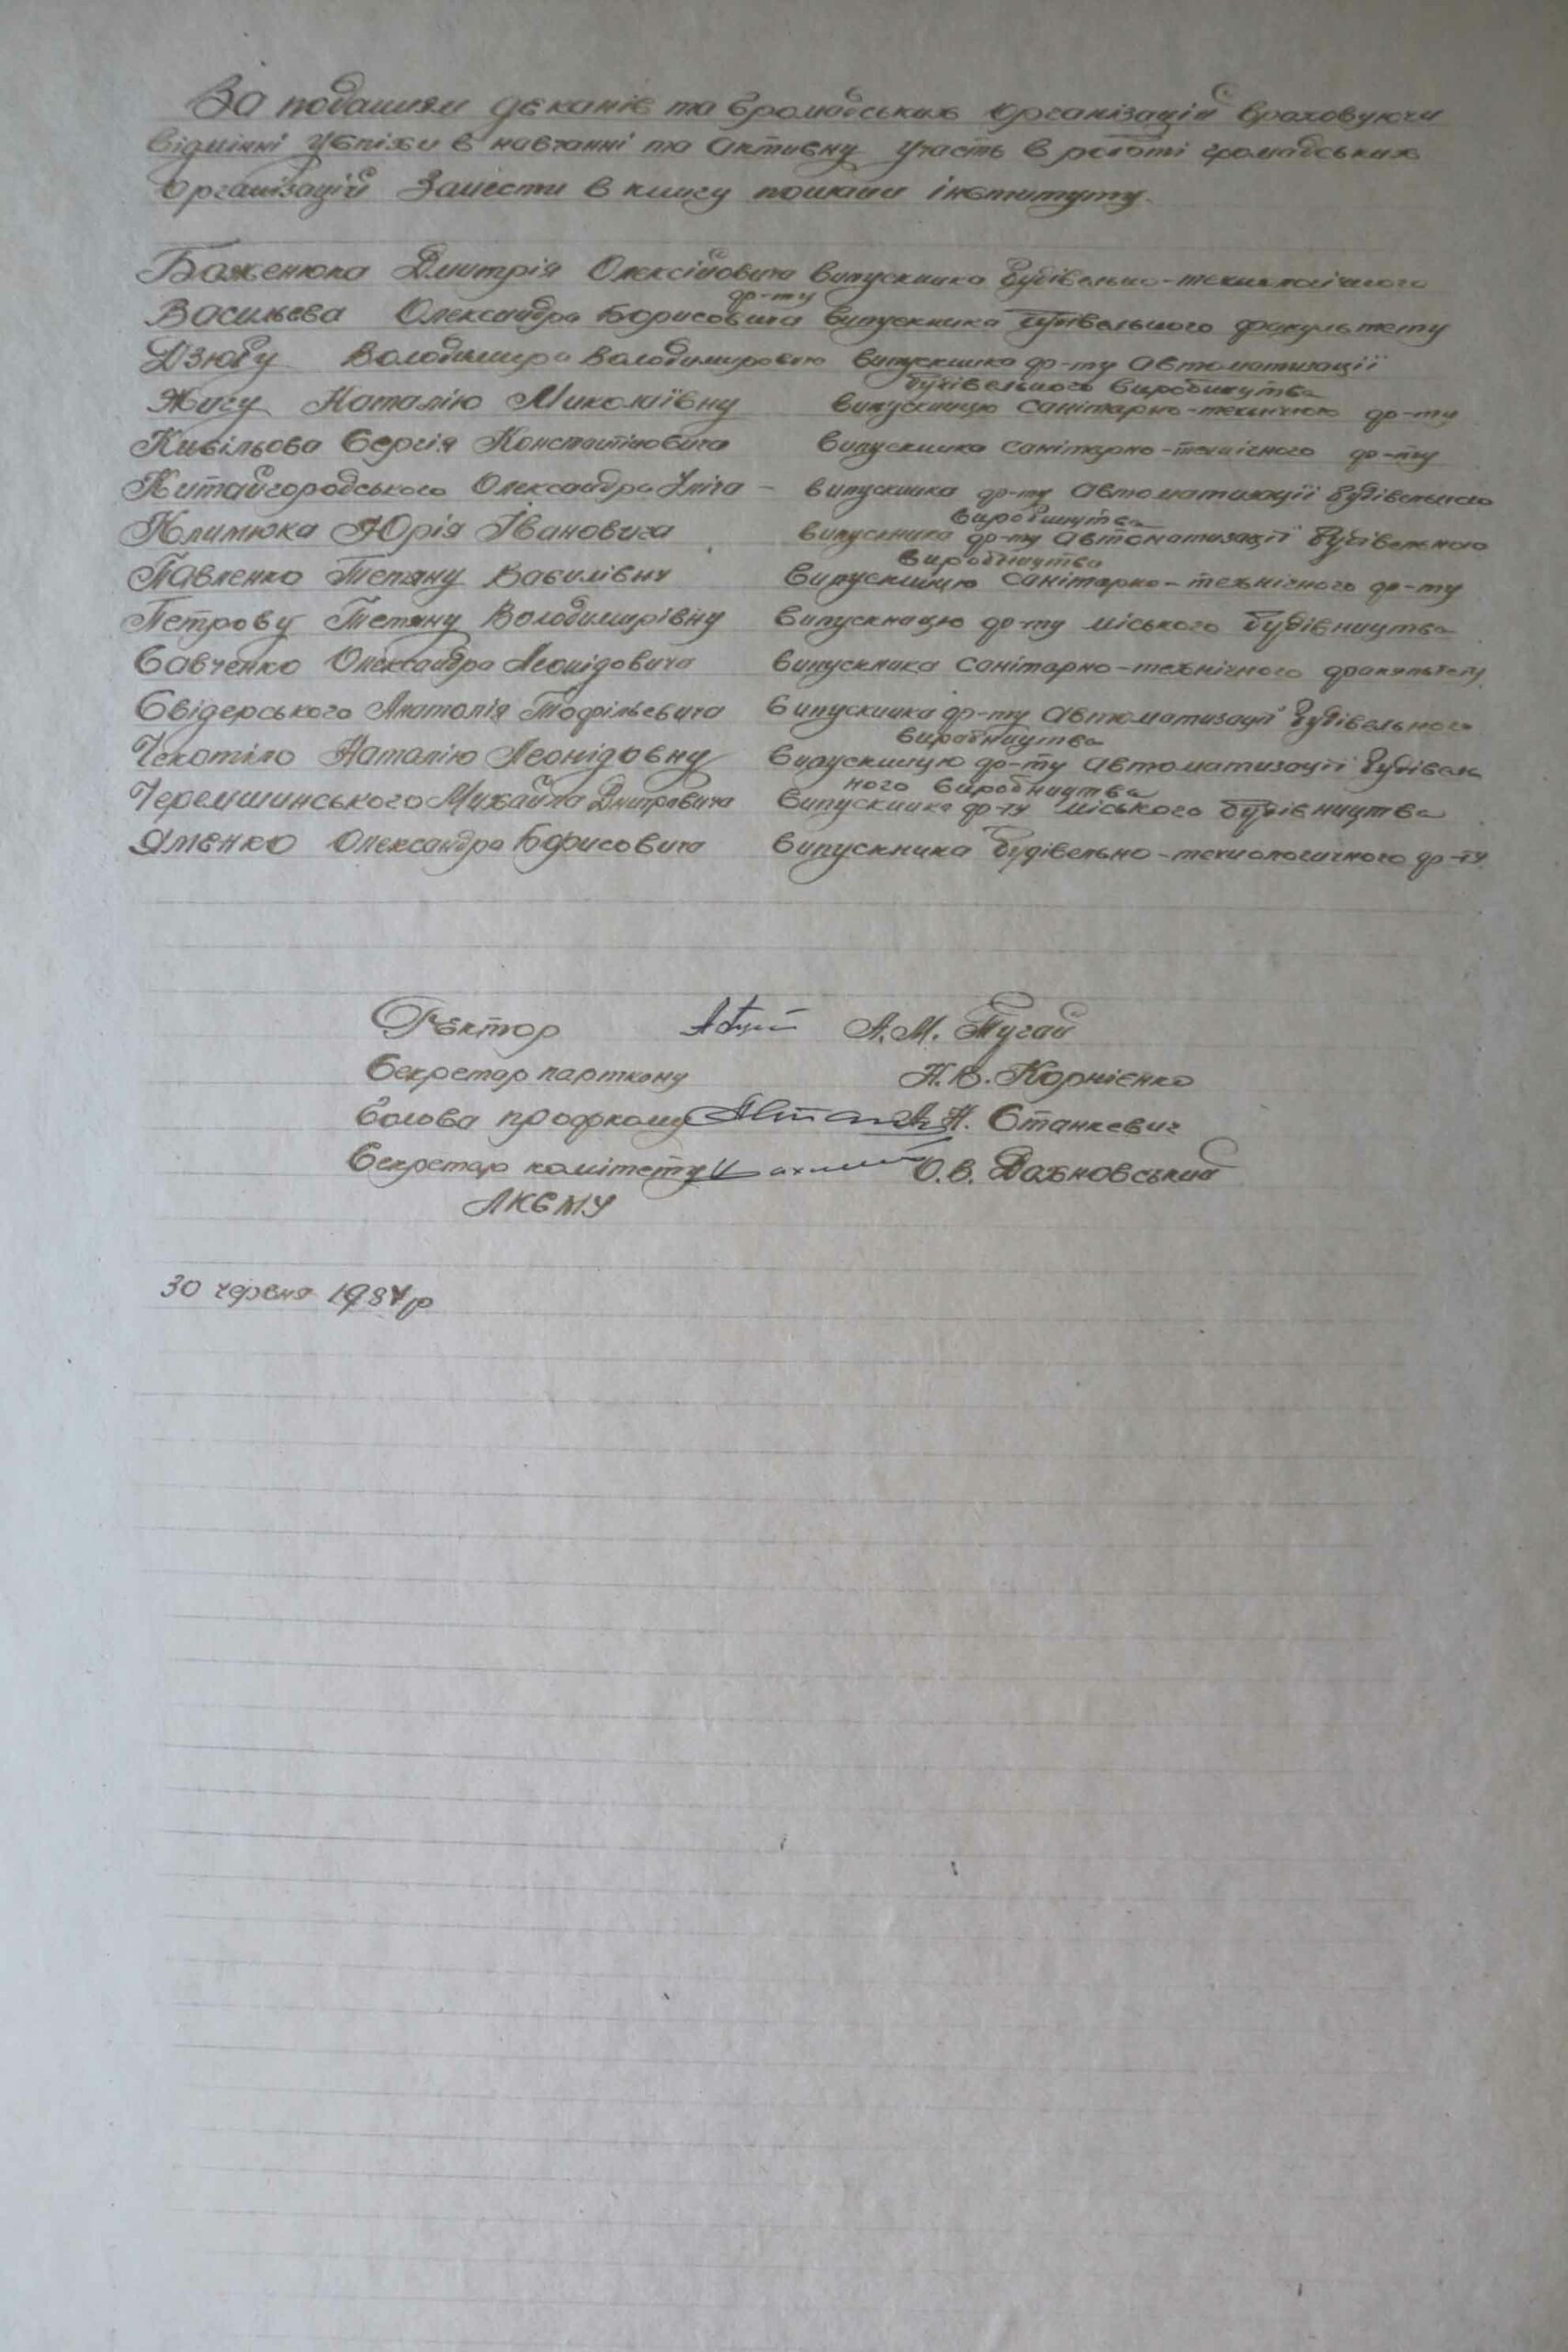 За поданням деканів та громадських організацій враховуючи
відмінні успіхи в навчанні та активну участь в роботі громадських
організацій занести в книгу пошани інституту.
Баженюка Дмитрія Олексійовича випускника будівельно-технологічного
ф-ту
Васильєва Олександра Борисовича випускника будівельного факультету
Дзюбу Володимира Володимировича випускника ф-ту автоматизації
будівельного виробництва
Жигу Наталію Миколаївну випускницю санітарно-технічного ф-ту
Сергія Константіновича випускника санітарно-технічного ф-ту
Китайгородського Олександра Ілліча - випускника ф-ту автоматизації будівельного
виробництва
Климюка Юрія Івановича випускника ф-ту автоматизації будівельного
виробництва
Павленко Тетяну Василівну випускницю санітарно-технічного ф-ту
Петрову Тетяну Володимирівну випускницю ф-ту міського будівництва
Савченко Олександра Леонідовича випускника санітарно-технічного факультету
Свідерського Анатолія Тофільевича випускника ф-ту автоматизації будівельного
виробництва
Чекотіло Наталію Леонідовну випускницю ф-ту автоматизації будівель
ного виробництва
Черемшинського Михайла Дмитровича випускника ф-ту міського будівництва
Яменко Олександра Борисовича випускника будівельно-технологичного ф-ту
Ректор А.М. Тугай
Секретар парткому Н.В. Корнієнко
Голова профкому А.Н. Станкевич
Секретар комітету О.В. Дахновський
ЛКСМУ
30 червня 1987р